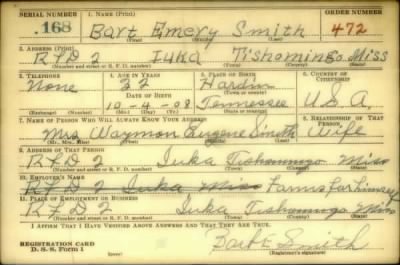 SERIAL NUMBER 1. NAME (Print) ORDER NUMBER
168 Bart Emery Smith 472
(First) (Middle) (Last)
2. ADDRESS (Print)
RFD 2 Iuka Tishomingo Miss
(Number and street or R. F. D. number) (Town) (County) (State)
3. TELEPHONE 4. AGE IN YEARS 5. PLACE OF BIRTH 6. COUNTRY OF CITIZENSHIP
None 32 Hardin
DATE OF BIRTH (Town or county)
10-4-08 Tennessee U.S.A.
(Exchange) (Number) (Mo.) (Day) (Yr.) (State or country)
7. NAME OF PERSON WHO WILL ALWAYS KNOW YOUR ADDRESS 8. RELATIONSHIP OF THAT PERSON
Mrs Waymon Eugene Smith Wife
(Mr., Mrs., Miss) (First) (Middle) (Last)
9. ADDRESS OF THAT PERSON
RFD 2 Iuka Tishomingo Miss
(Number and street or R. F. D. number) (Town) (County) (State)
10. EMPLOYER'S NAME
RFD 2 Iuka Miss Farms for himself
11. PLACE OF EMPLOYMENT OR BUSINESS
RFD 2 Iuka Tishomingo Miss
(Number and street or R. F. D. number) (Town) (County) (State)
I AFFIRM THAT I HAVE VERIFIED ABOVE ANSWERS AND THAT THEY ARE TRUE.
REGISTRATION CARD
D. S. S. Form 1 Bart E Smith
(Registrant's signature)